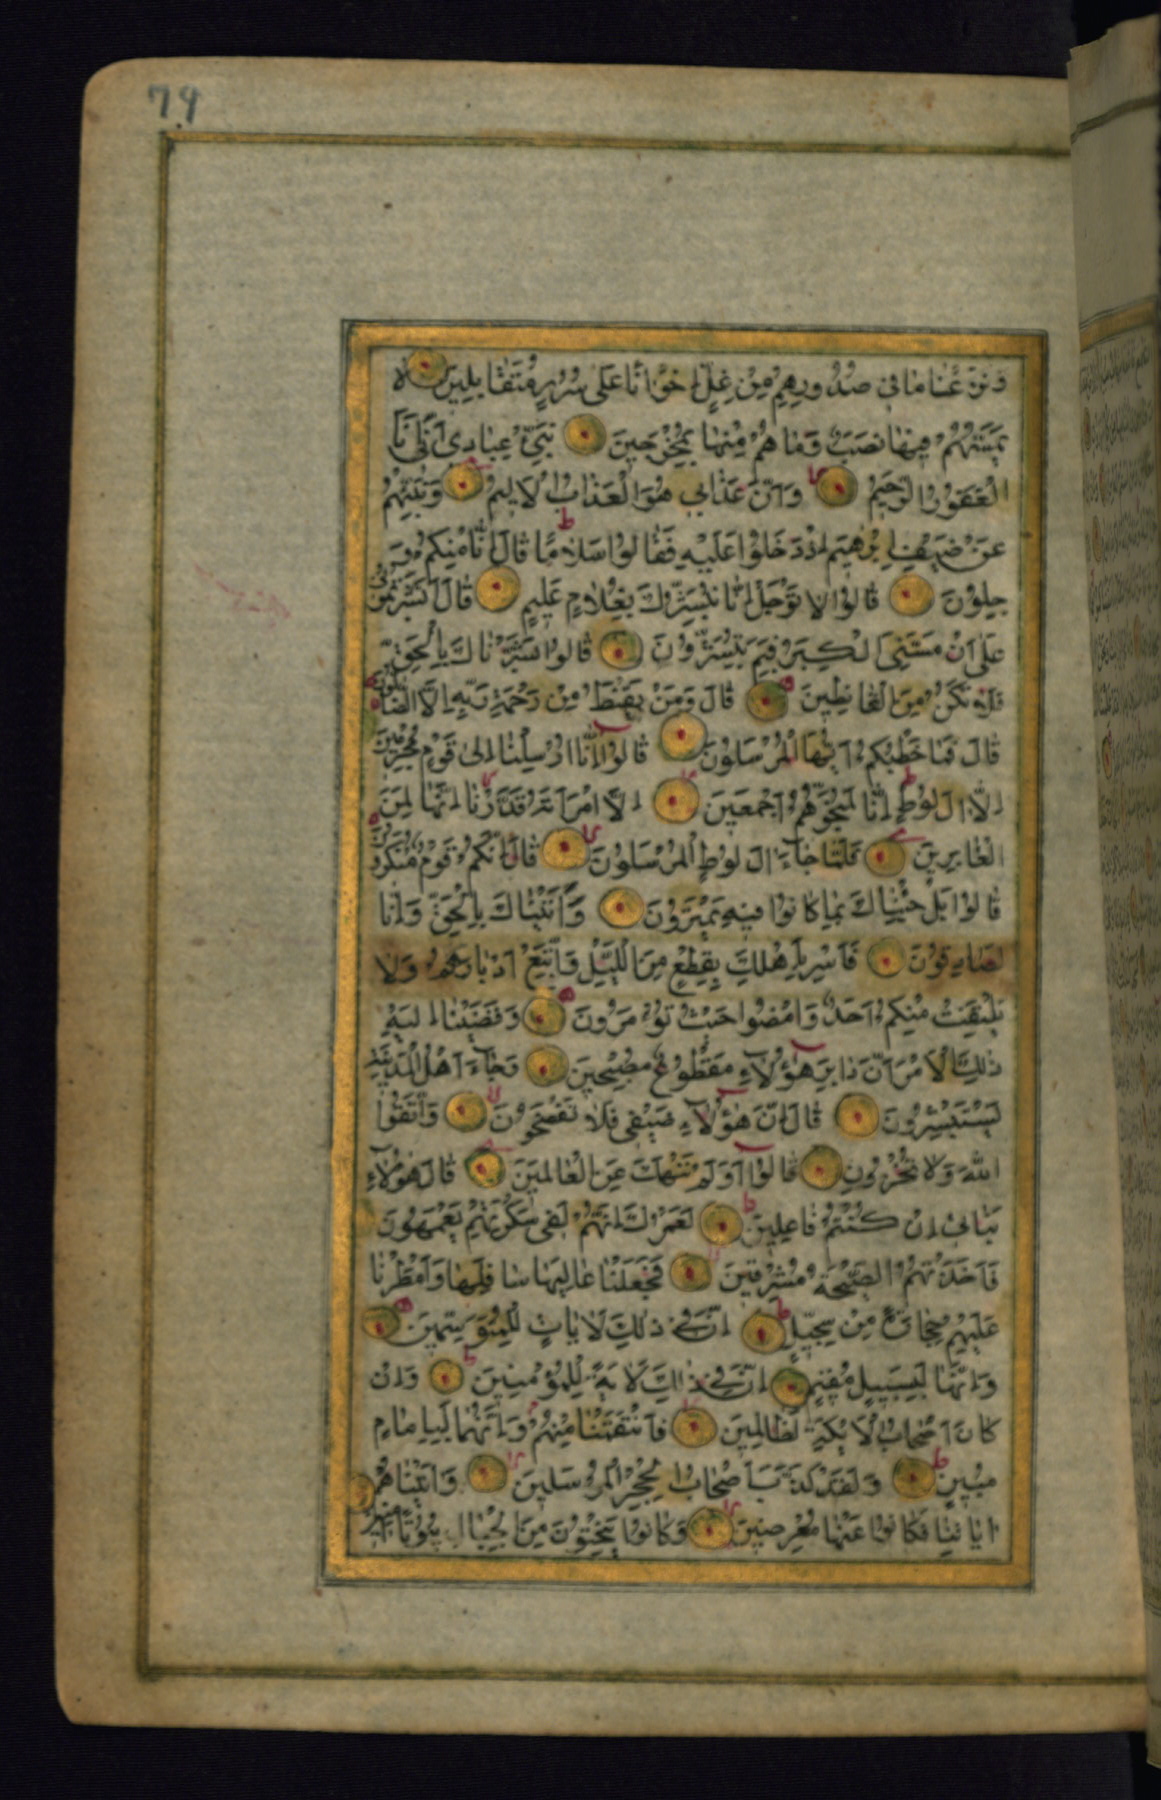 79
وَنَزَعْنَا مَا فِي صُدُورِهِمْ مِنْ غِلٍّ اِخْوَانًا عَلَى سُرُرٍ مُتَقَابِلِينَ لَا
يَمَسُّهُمْ فِيهَا نَصَبٌ وَمَا هُمْ مِنْهَا بِمُخْرَجِينَ نَبِّئْ عِبَادِي اَنِّي اَنَا
الْغَفُورُ الرَّحِيمُ وَاَنَّ عَذَابِي هُوَ الْعَذَابُ الْاَلِيمُ وَنَبِّئْهُمْ
عَنْ ضَيْفِ اِبْرٰهِيمَ اِذْ دَخَلُوا عَلَيْهِ فَقَالُوا سَلَامًا قَالَ اِنَّا مِنْكُمْ
وَجِلُونَ قَالُوا لَا تَوْجَلْ اِنَّا نُبَشِّرُكَ بِغُلَامٍ عَلِيمٍ قَالَ اَبَشَّرْتُمُونِي
عَلَى اَنْ مَسَّنِيَ الْكِبَرُ فَبِمَ تُبَشِّرُونَ قَالُوا بَشَّرْنَاكَ بِالْحَقِّ
فَلَا تَكُنْ مِنَ الْقَانِطِينَ قَالَ وَمَنْ يَقْنَطُ مِنْ رَحْمَةِ رَبِّهِ اِلَّا الضَّالُّونَ
قَالَ فَمَا خَطْبُكُمْ اَيُّهَا الْمُرْسَلُونَ قَالُوا اِنَّا اُرْسِلْنَا اِلَى قَوْمٍ مُجْرِمِينَ
اِلَّا اٰلَ لُوطٍ اِنَّا لَمُنَجُّوهُمْ اَجْمَعِينَ اِلَّا امْرَاَتَهُ قَدَّرْنَا اِنَّهَا لَمِنَ
الْغَابِرِينَ فَلَمَّا جَاءَ اٰلَ لُوطٍ الْمُرْسَلُونَ قَالَ اِنَّكُمْ قَوْمٌ مُنْكَرُونَ
قَالُوا بَلْ جِئْنَاكَ بِمَا كَانُوا فِيهِ يَمْتَرُونَ وَاَتَيْنَاكَ بِالْحَقِّ وَاِنَّا
لَصَادِقُونَ فَاَسْرِ بِاَهْلِكَ بِقِطْعٍ مِنَ اللَّيْلِ وَاتَّبِعْ اَدْبَارَهُمْ وَلَا
يَلْتَفِتْ مِنْكُمْ اَحَدٌ وَامْضُوا حَيْثُ تُؤْمَرُونَ وَقَضَيْنَا اِلَيْهِ
ذٰلِكَ الْاَمْرَ اَنَّ دَابِرَ هٰؤُلَاءِ مَقْطُوعٌ مُصْبِحِينَ وَجَاءَ اَهْلُ الْمَدِينَةِ
يَسْتَبْشِرُونَ قَالَ اِنَّ هٰؤُلَاءِ ضَيْفِي فَلَا تَفْضَحُونِ وَاتَّقُوا
اللّٰهَ وَلَا تُخْزُونِ قَالُوا اَوَلَمْ نَنْهَكَ عَنِ الْعَالَمِينَ قَالَ هٰؤُلَاءِ
بَنَاتِي اِنْ كُنْتُمْ فَاعِلِينَ لَعَمْرُكَ اِنَّهُمْ لَفِي سَكْرَتِهِمْ يَعْمَهُونَ
فَاَخَذَتْهُمُ الصَّيْحَةُ مُشْرِقِينَ فَجَعَلْنَا عَالِيَهَا سَافِلَهَا وَاَمْطَرْنَا
عَلَيْهِمْ حِجَارَةً مِنْ سِجِّيلٍ اِنَّ فِي ذٰلِكَ لَاٰيَاتٍ لِلْمُتَوَسِّمِينَ
وَاِنَّهَا لَبِسَبِيلٍ مُقِيمٍ اِنَّ فِي ذٰلِكَ لَاٰيَةً لِلْمُؤْمِنِينَ وَاِنْ
كَانَ اَصْحَابُ الْاَيْكَةِ لَظَالِمِينَ فَانْتَقَمْنَا مِنْهُمْ وَاِنَّهُمَا لَبِاِمَامٍ
مُبِينٍ وَلَقَدْ كَذَّبَ اَصْحَابُ الْحِجْرِ الْمُرْسَلِينَ وَاٰتَيْنَاهُمْ
اٰيَاتِنَا فَكَانُوا عَنْهَا مُعْرِضِينَ وَكَانُوا يَنْحِتُونَ مِنَ الْجِبَالِ بُيُوتًا